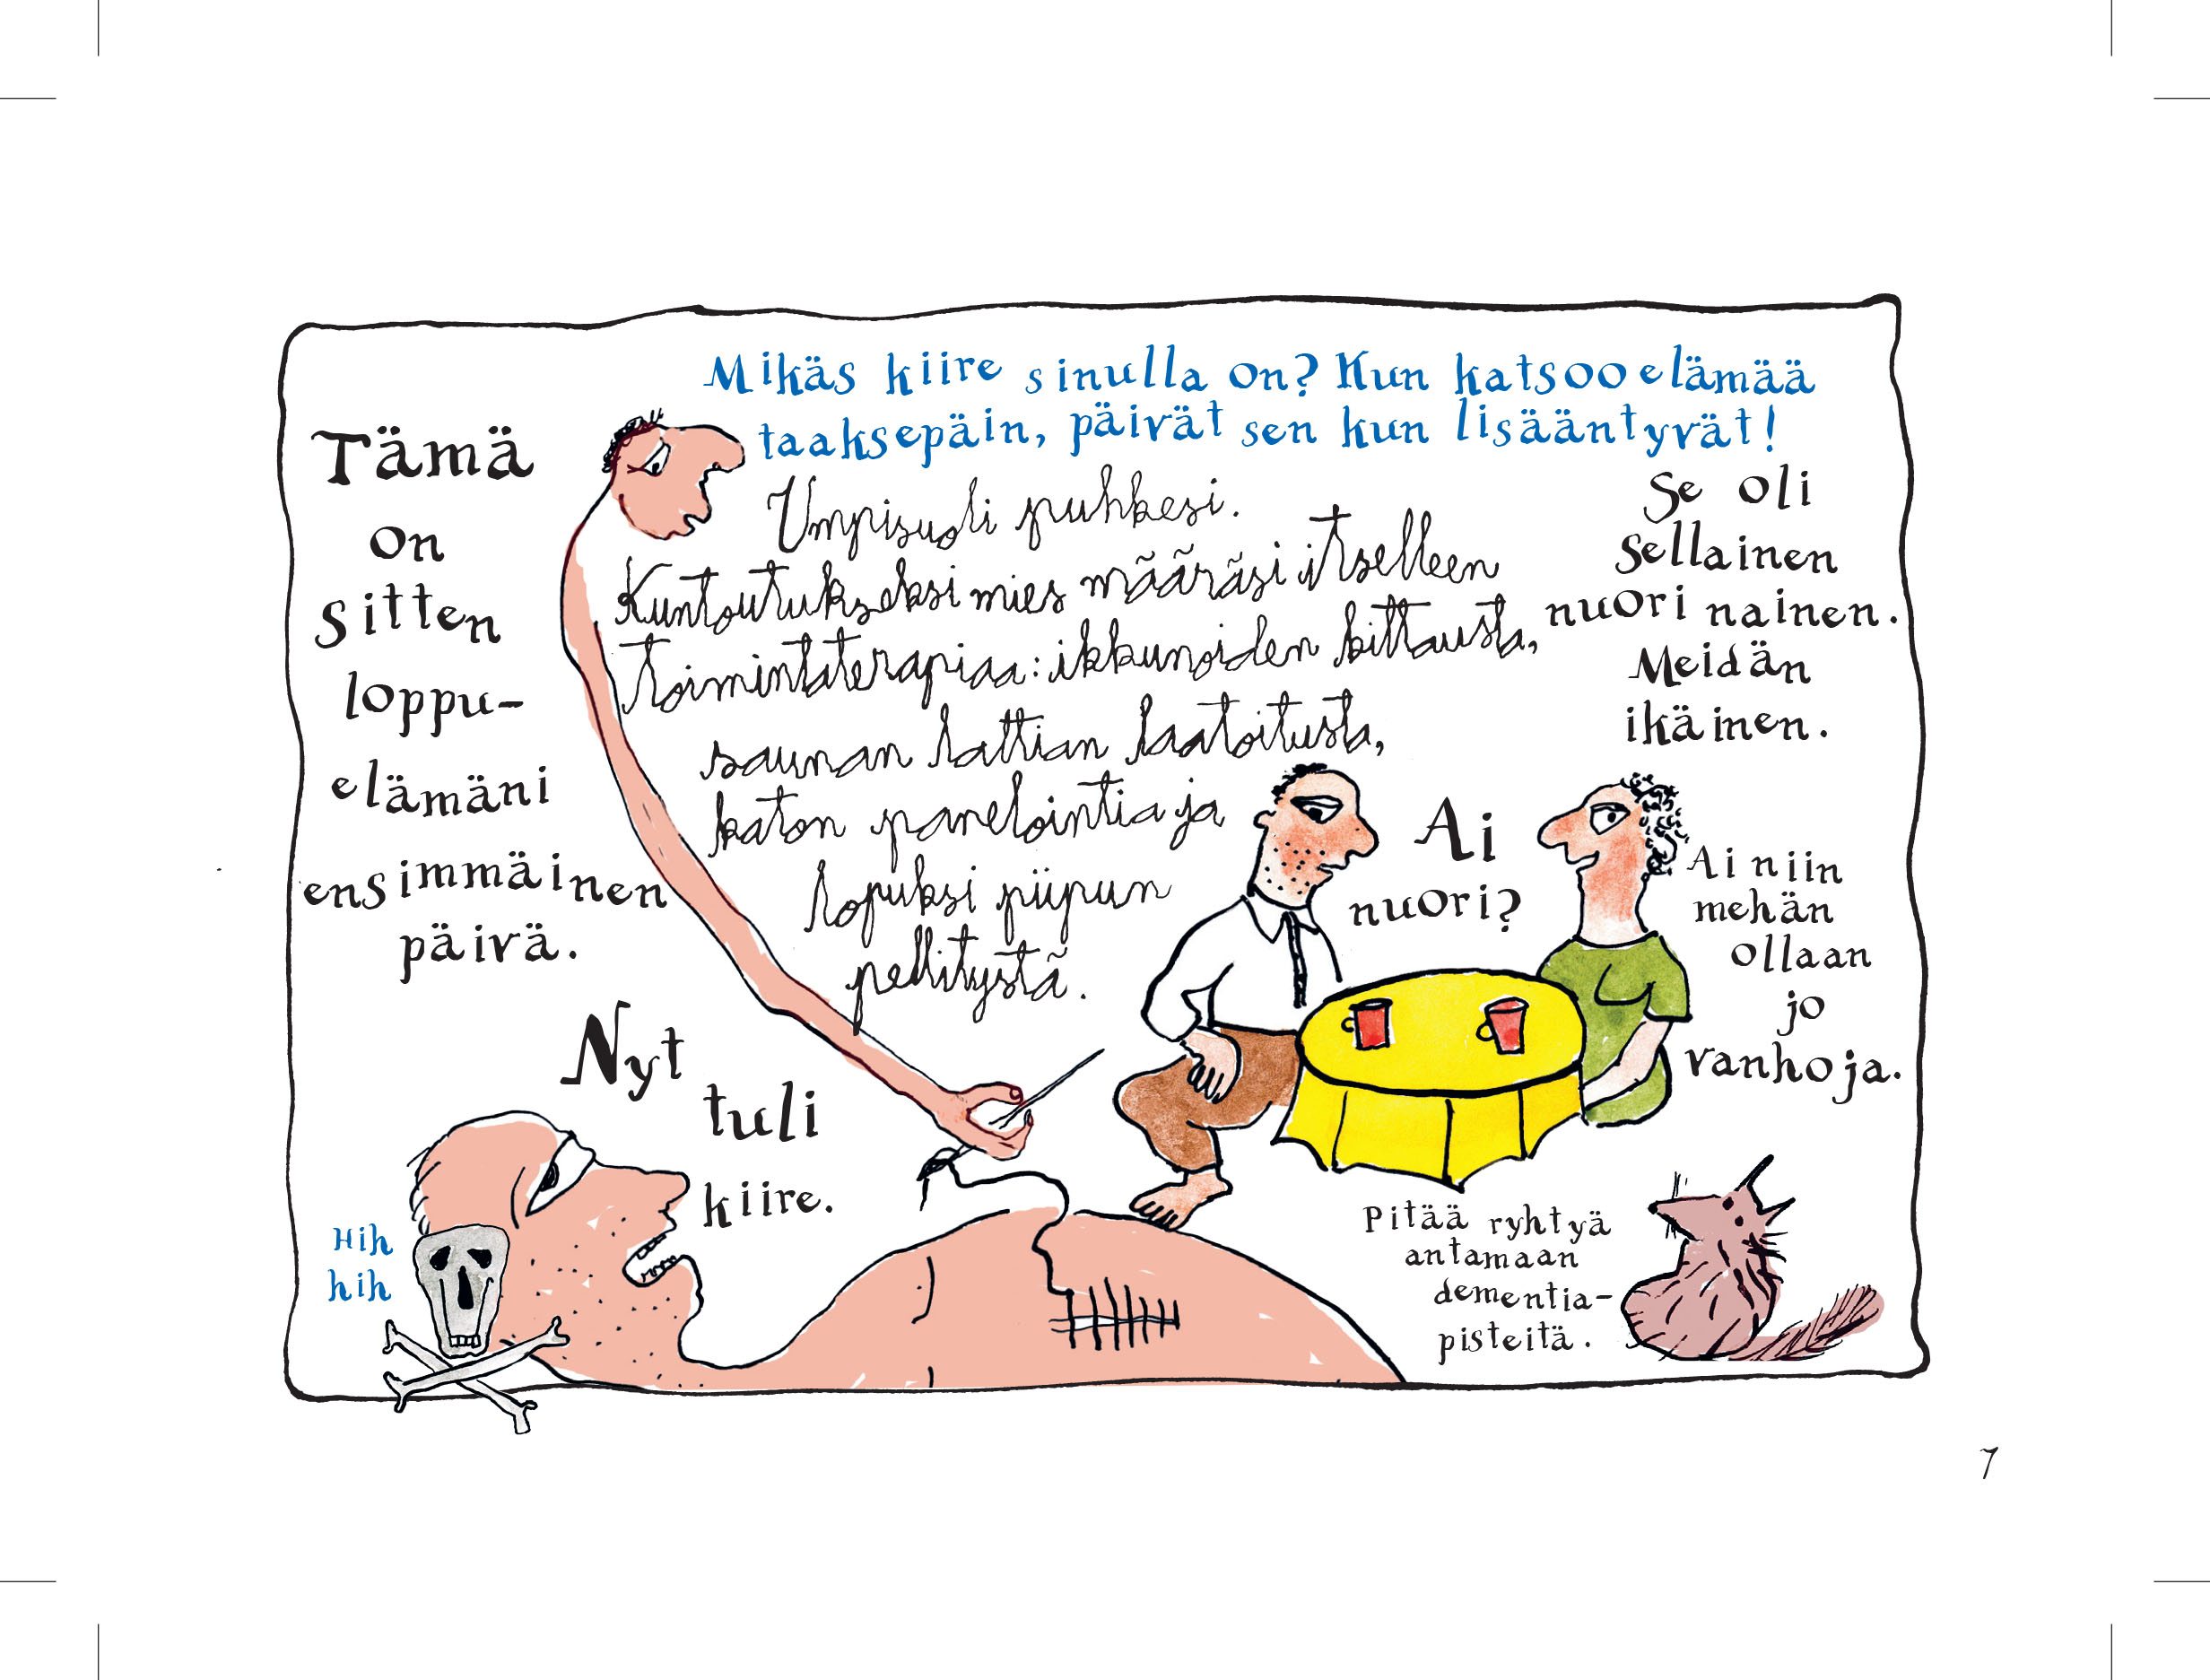 Mikäs kiire sinulla on? Kun katsoo elämää
taaksepäin, päivät sen kun lisääntyvät!
Tämä
on
sitten
loppu-
elämäni
ensimmäinen
päivä.
Umpisuoli puhkesi.
Kuntoutukseksi mies määräsi itselleen
toimintaterapiaa: ikkunoiden kittausta,
saunan lattian laatoitusta,
katon panelointia ja
lopuksi piipun
pellitystä.
Se oli
sellainen
nuori nainen.
Meidän
ikäinen.
Ai
nuori?
Ai niin
mehän
ollaan
jo
vanhoja.
Nyt
tuli
kiire.
Hih
hih
Pitää ryhtyä
antamaan
dementia-
pisteitä.
7